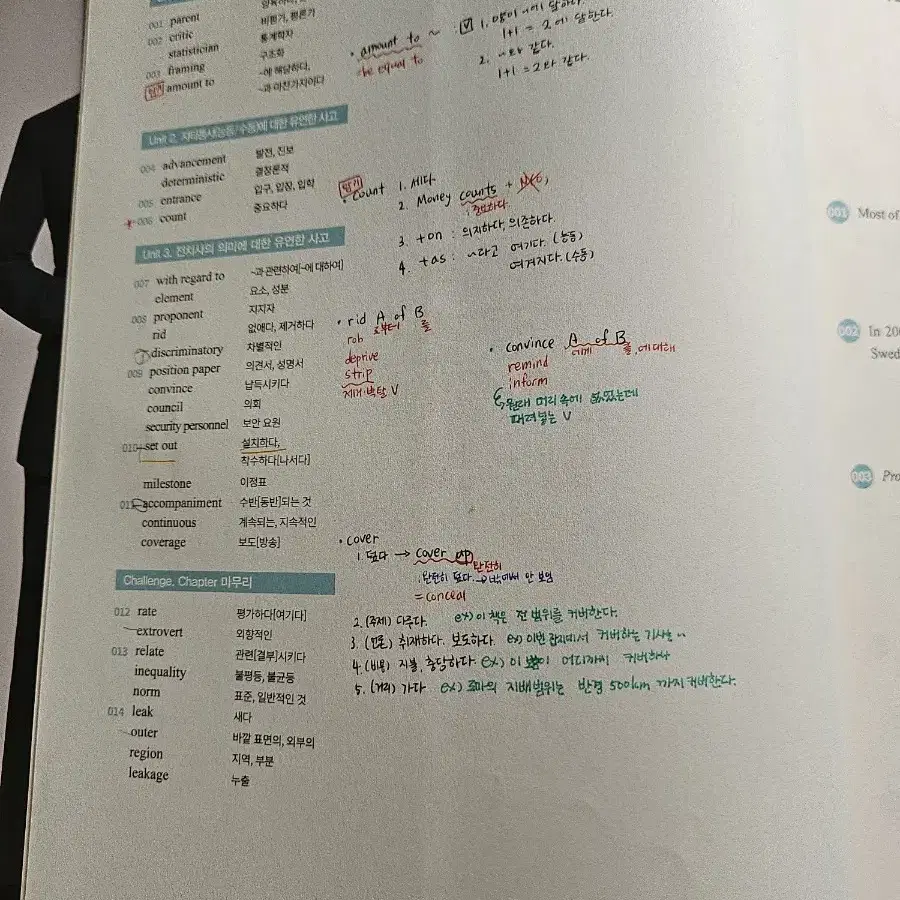 001 parent
002 critic 비평가, 평론가
statistician 통계학자
003 framing 구조화
암기 amount to ~에 해당하다, ~과 마찬가지이다
• amount to ~
be equal to
1+1 = 2에 달한다.
2. ~와 같다.
1+1 = 2와 같다.
Unit 2. 자타동사(능동/수동)에 대한 유연한 사고
004 advancement 발전, 진보
deterministic 결정론적
005 entrance 입구, 입장, 입학
006 count 중요하다
암기
• count 1. 세다
2. Money counts
: 중요하다.
3. +on : 의지하다, 의존하다.
4. +as : ~라고 여기다. (능동)
여겨지다. (수동)
Unit 3. 전치사의 의미에 대한 유연한 사고
007 with regard to ~과 관련하여[~에 대하여]
element 요소, 성분
008 proponent 지지자
rid 없애다, 제거하다
discriminatory 차별적인
009 position paper 의견서, 성명서
convince 납득시키다
council 의회
security personnel 보안 요원
010 set out 설치하다,
착수하다[나서다]
milestone 이정표
011 accompaniment 수반[동반]되는 것
continuous 계속되는, 지속적인
coverage 보도[방송]
• rid A of B
로부터 를
rob
deprive
strip
제거·박탈 V
• convince A of B
에게 를, 에 대해
remind
inform
원래 머리 속에 없었는데
때려넣는 V
• cover
1. 덮다 → cover up
완전히
: 완전히 덮다. → 밖에서 안 보임
= conceal
2. (주제) 다루다. ex) 이 책은 전 범위를 커버한다.
3. (언론) 취재하다. 보도하다. ex) 이번 잡지에서 커버하는 기사는 ..
4. (비용) 지불, 충당하다 ex) 이 돈이 어디까지 커버하사
5. (거리) 가다 ex) 로마의 지배범위는 반경 500km 까지 커버한다.
Challenge. Chapter 마무리
012 rate 평가하다[여기다]
extrovert 외향적인
013 relate 관련[결부]시키다
inequality 불평등, 불균등
norm 표준, 일반적인 것
014 leak 새다
outer 바깥 표면의, 외부의
region 지역, 부분
leakage 누출
001 Most of
002 In 200
Swed
003 Pro